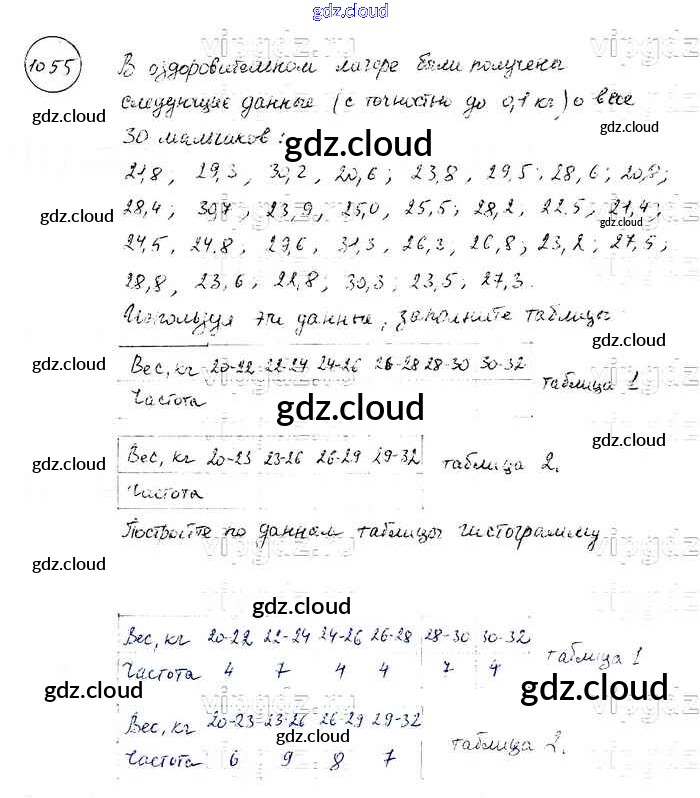 gdz.cloud
1055 В оздоровительном лагере были получены
gdz.cloud
следующие данные (с точностью до 0,1 кг) о весе
gdz.cloud gdz.cloud
30 мальчиков:
gdz.cloud
21,8, 29,3, 30,2, 20,6; 23,8, 29,5; 28,6; 20,8;
28,4; 30,7, 23,9, 25,0, 25,5; 28,2, 22,5, 21,4;
gdz.cloud gdz.cloud
24,5, 24,8, 29,6, 31,3, 26,3, 26,8; 23,2; 27,5;
28,8, 23,6; 22,8; 30,3; 23,5; 27,3.
Используя эти данные, заполните таблицы
gdz.cloud gdz.cloud
Вес, кг 20-22 22-24 24-26 26-28 28-30 30-32 таблица 1
Частота
gdz.cloud
gdz.cloud
Вес, кг 20-23 23-26 26-29 29-32 таблица 2.
gdz.cloud
Частота
Постройте по данным таблицы гистограмму
vipgdz
gdz.cloud
gdz.cloud
Вес, кг 20-22 22-24 24-26 26-28 28-30 30-32 таблица 1
Частота 4 7 4 4 7 4
gdz.cloud gdz.cloud gdz.cloud
Вес, кг 20-23 23-26 26-29 29-32 таблица 2.
Частота 6 9 8 7